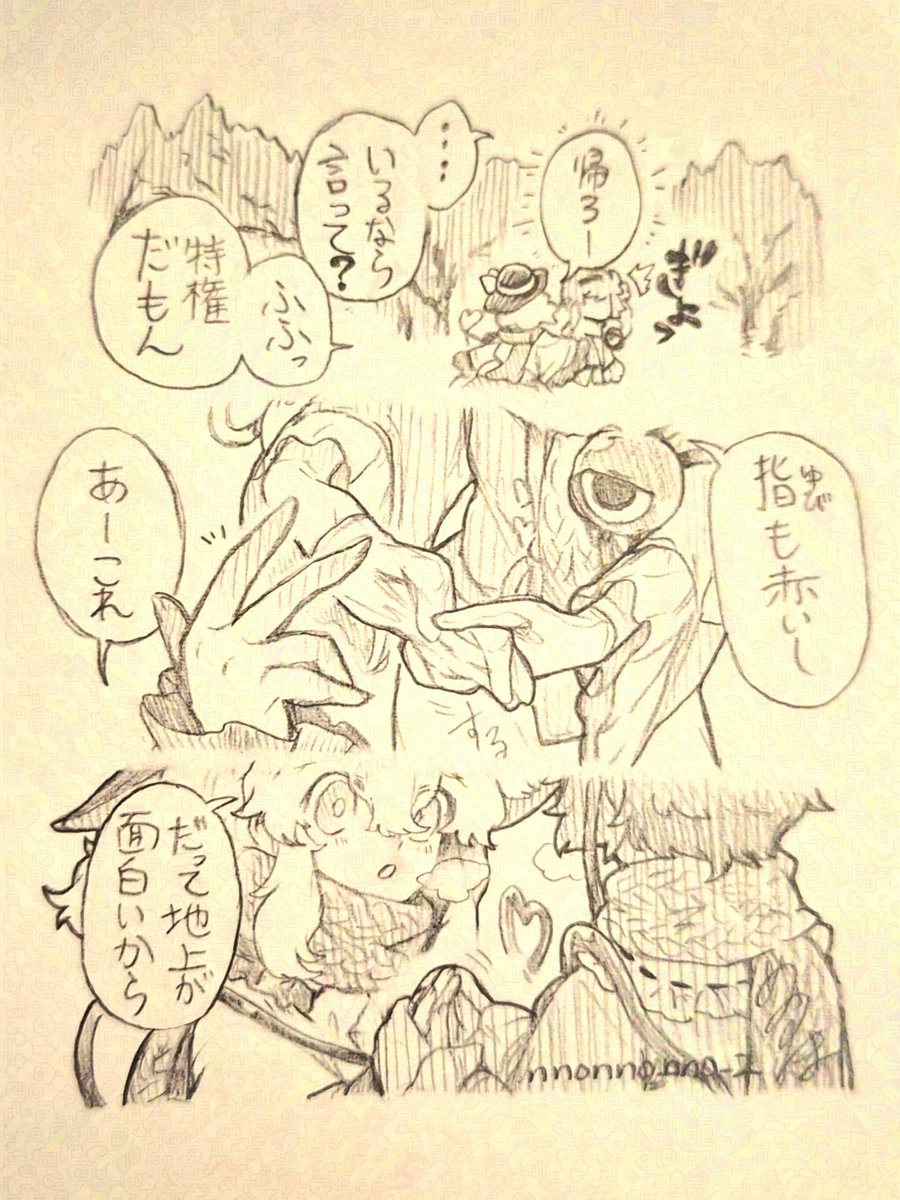 帰ろー
‥‥
いるなら
言って?
ふふっ
特権
だもん
ゆび
指も赤いし
する
あーこれ
だって地上が
面白いから